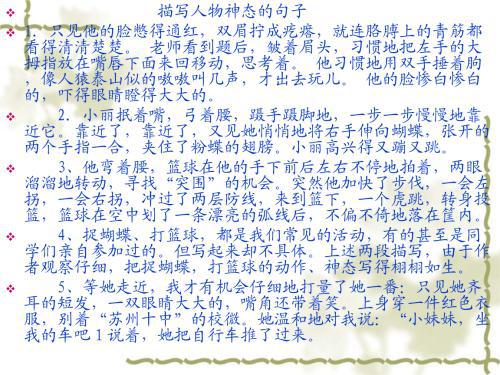 描写人物神态的句子
1. 只见他的脸憋得通红，双眉拧成疙瘩，就连胳膊上的青筋都
看得清清楚楚。 老师看到题后，皱着眉头，习惯地把左手的大
拇指放在嘴唇下面来回移动，思考着。 他习惯地用双手捶着胸
，像人猿泰山似的嗷嗷叫几声，才出去玩儿。 他的脸惨白惨白
的，吓得眼睛瞪得大大的。
2．小丽抿着嘴，弓着腰，蹑手蹑脚地，一步一步慢慢地靠
近它。靠近了，靠近了，又见她悄悄地将右手伸向蝴蝶，张开的
两个手指一合，夹住了粉蝶的翅膀。小丽高兴得又蹦又跳。
3、他弯着腰，篮球在他的手下前后左右不停地拍着，两眼
溜溜地转动，寻找“突围”的机会。突然他加快了步伐，一会左
拐，一会右拐，冲过了两层防线，来到篮下，一个虎跳，转身投
篮，篮球在空中划了一条漂亮的弧线后，不偏不倚地落在筐内。
4、捉蝴蝶、打篮球，都是我们常见的活动，有的甚至是同
学们亲自参加过的。但写起来却不具体。上述两段描写，由于作
者观察仔细，把捉蝴蝶，打篮球的动作、神态写得栩栩如生。
5、等她走近，我才有机会仔细地打量了她一番：只见她齐
耳的短发，一双眼睛大大的，嘴角还带着笑。上身穿一件红色衣
服，别着“苏州十中”的校微。她温和地对我说：“小妹妹，坐
我的车吧1说着，她把自行车推了过来。